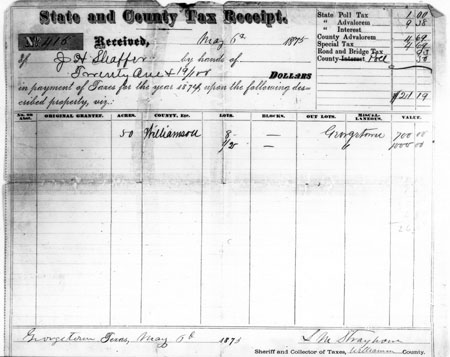 State and County Tax Receipt.
No. 415 Received, May 6th 1875
of J H Shaffer by hands of
Twenty One & 19/100 Dollars
in payment of Taxes for the year 1874, upon the following des-
cribed property, viz:
State Poll Tax 1 00
" Advalorem 9 38
" Interest
County Advalorem 4 69
Special Tax
Road and Bridge Tax
County Interest Poll 50
$21.19
ORIGINAL GRANTEE. ACRES. COUNTY, Etc. LOTS. BLOCKS. OUT LOTS. MISCEL-LANEOUS. VALUE.
50 Williamson 8 — Georgetown 700 00
1/2 — " 1000 00
Georgetown Texas, May 6th 1875 S M Strayhorn
Sheriff and Collector of Taxes, Williamson County.